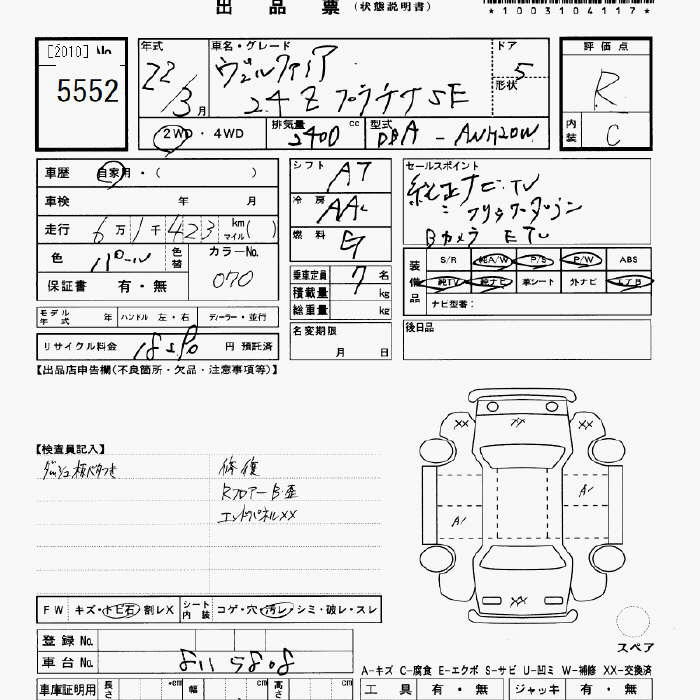 出品票 (状態説明書)
*1003104117*
[2010] No. 5552
年式 22/3月
車名・グレード ヴェルファイア 24Z プラチナSE
ドア 5
形状
評価点 R
内装 C
2WD・4WD
排気量 2400 cc
型式 DBA - ANH20W
車歴 自家用・( )
シフト AT
セールスポイント
純正ナビ・TV
フリップダウン
Bカメラ ETC
車検 年 月
冷房 AAC
走行 6万1千423 km マイル( )
燃料 G
色 パール 色替
カラーNo. 070
保証書 有・無
乗車定員 7名
積載量 kg
総重量 kg
装備品 S/R 純A/W P/S P/W ABS
純TV 純ナビ 革シート 外ナビ エアB
ナビ型番:
モデル年式 年 ハンドル 左・右 ディーラー・並行
名変期限 月 日
後日品
リサイクル料金 円 預託済
【出品店申告欄(不良箇所・欠品・注意事項等)】
【検査員記入】
修復
RフロアーB・歪
エンドパネルXX
XX XX XX
A1
A1
XX
スペア
FW キズ・トビ石・割レX
シート内装 コゲ・穴・汚レ・シミ・破レ・スレ
登録No.
車台No. 8115808
A-キズ C-腐食 E-エクボ S-サビ U-凹ミ W-補修 XX-交換済
車庫証明用 長さ cm 幅 cm 高さ cm
工具 有・無 ジャッキ 有・無